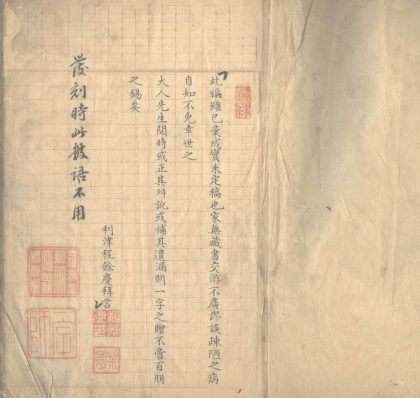 此編雖已彙成實未定稿也家無藏書交游不廣謬誤疎陋之病
自知不免幸世之
大人先生閱時或正其舛訛或補其遺漏則一字之贈不啻百朋
之錫矣
利津程餘慶拜言
發刻時此數語不用